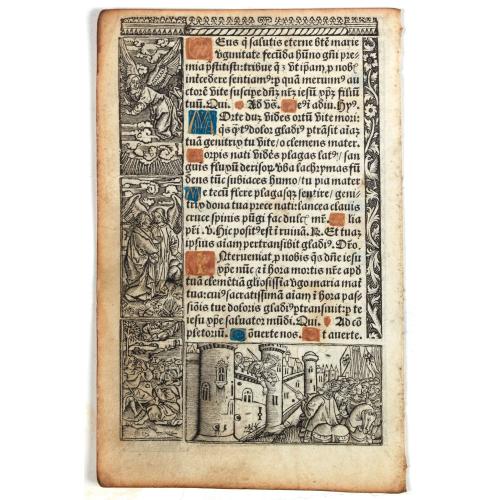 Eus q̄ salutis eterne bt̄e marie
v̄ginitate fecūda hūno gn̄i pre-
mia p̄stitisti: tribue q̄ȝ vt ip̄am, p nob̄
intcedere sentiamꝰ: p quā meruimꝰ au
ctorē vite suscipe dn̄ȝ nr̄ȝ iesū xp̄ȝ filiū
tuū. Qui. Ad vs̄. Deꝰ i adiu. Hyꝰ.
MOrte duȝ vides ortū vite mori:
qs q̄ tꝰ dolor gladiꝰ ptrāsit aīaȝ
tuā genitrip tu vite / o clemens mater.
Corpis nati vidēs plagas latꝰ / san
guis fluyū derisorȝ vba lachrymas fū
dens tūc subiaces humo / tu pia mater
te tecū flere plagasqȝ sentire / geni-
trip dona tua prece nati: lancea clauis
cruce spinis pūgi fac dulcȝ mr̄. lia
pr̄i. v. Hic positꝰ est i ruinā. R. Et tuaȝ
ipsius aīam pertransibit gladiꝰ. Oro.
INterueniat, p nobis qs dn̄e iesu
xp̄e nūc ⁊ i hora mortis nr̄e apd
tuā clemētiā gliosissia v̄go maria mat̄
tua: cuiꝰ sacratissimā aīam i hora pas-
siōis tue doloris gladiꝰ ptransiuit: p te
iesu xp̄e saluator mūdi. Qui. Ad cō
pletoriū. Cōuerte nos. Et auerte.